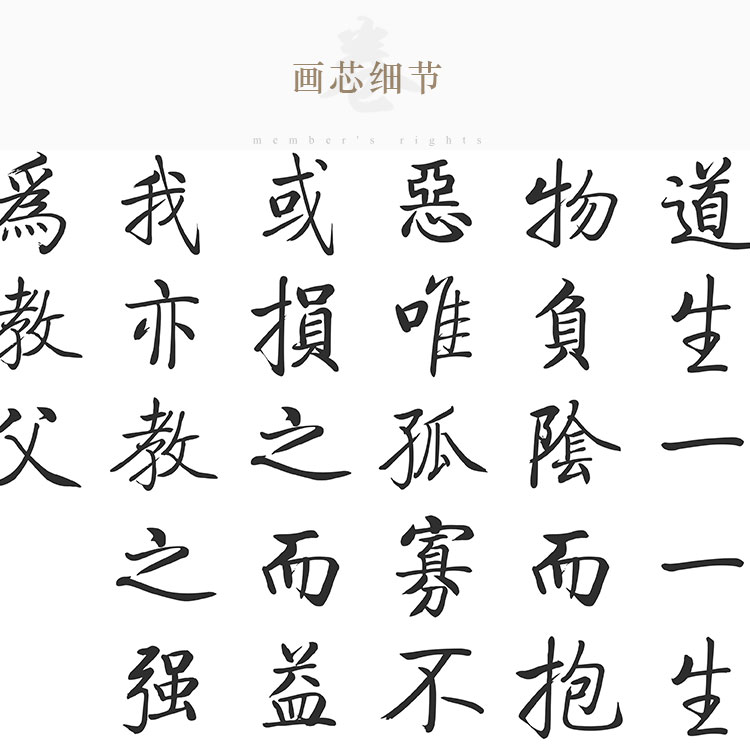 画芯细节
member's rights
道生一一生
物負陰而抱
惡唯孤寡不
或損之而益
我亦教之强
為教父